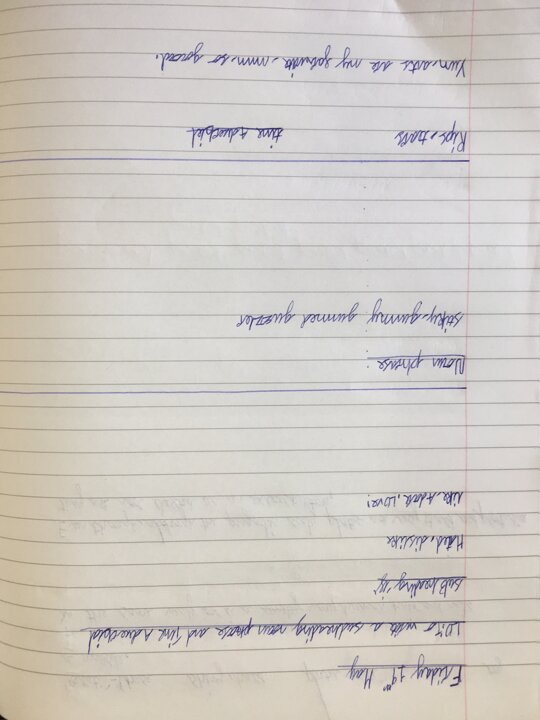 Friday 19th May
LO: To write a subheading noun phrase and time Adverbial
subheading "ig"
Hated, dislike
like, Adore, Love!
Noun phrase:
stiky, gummy gummed guzzler
Rips, tears time Adverbial
Yum, ants are my favourite, mmm, so good.